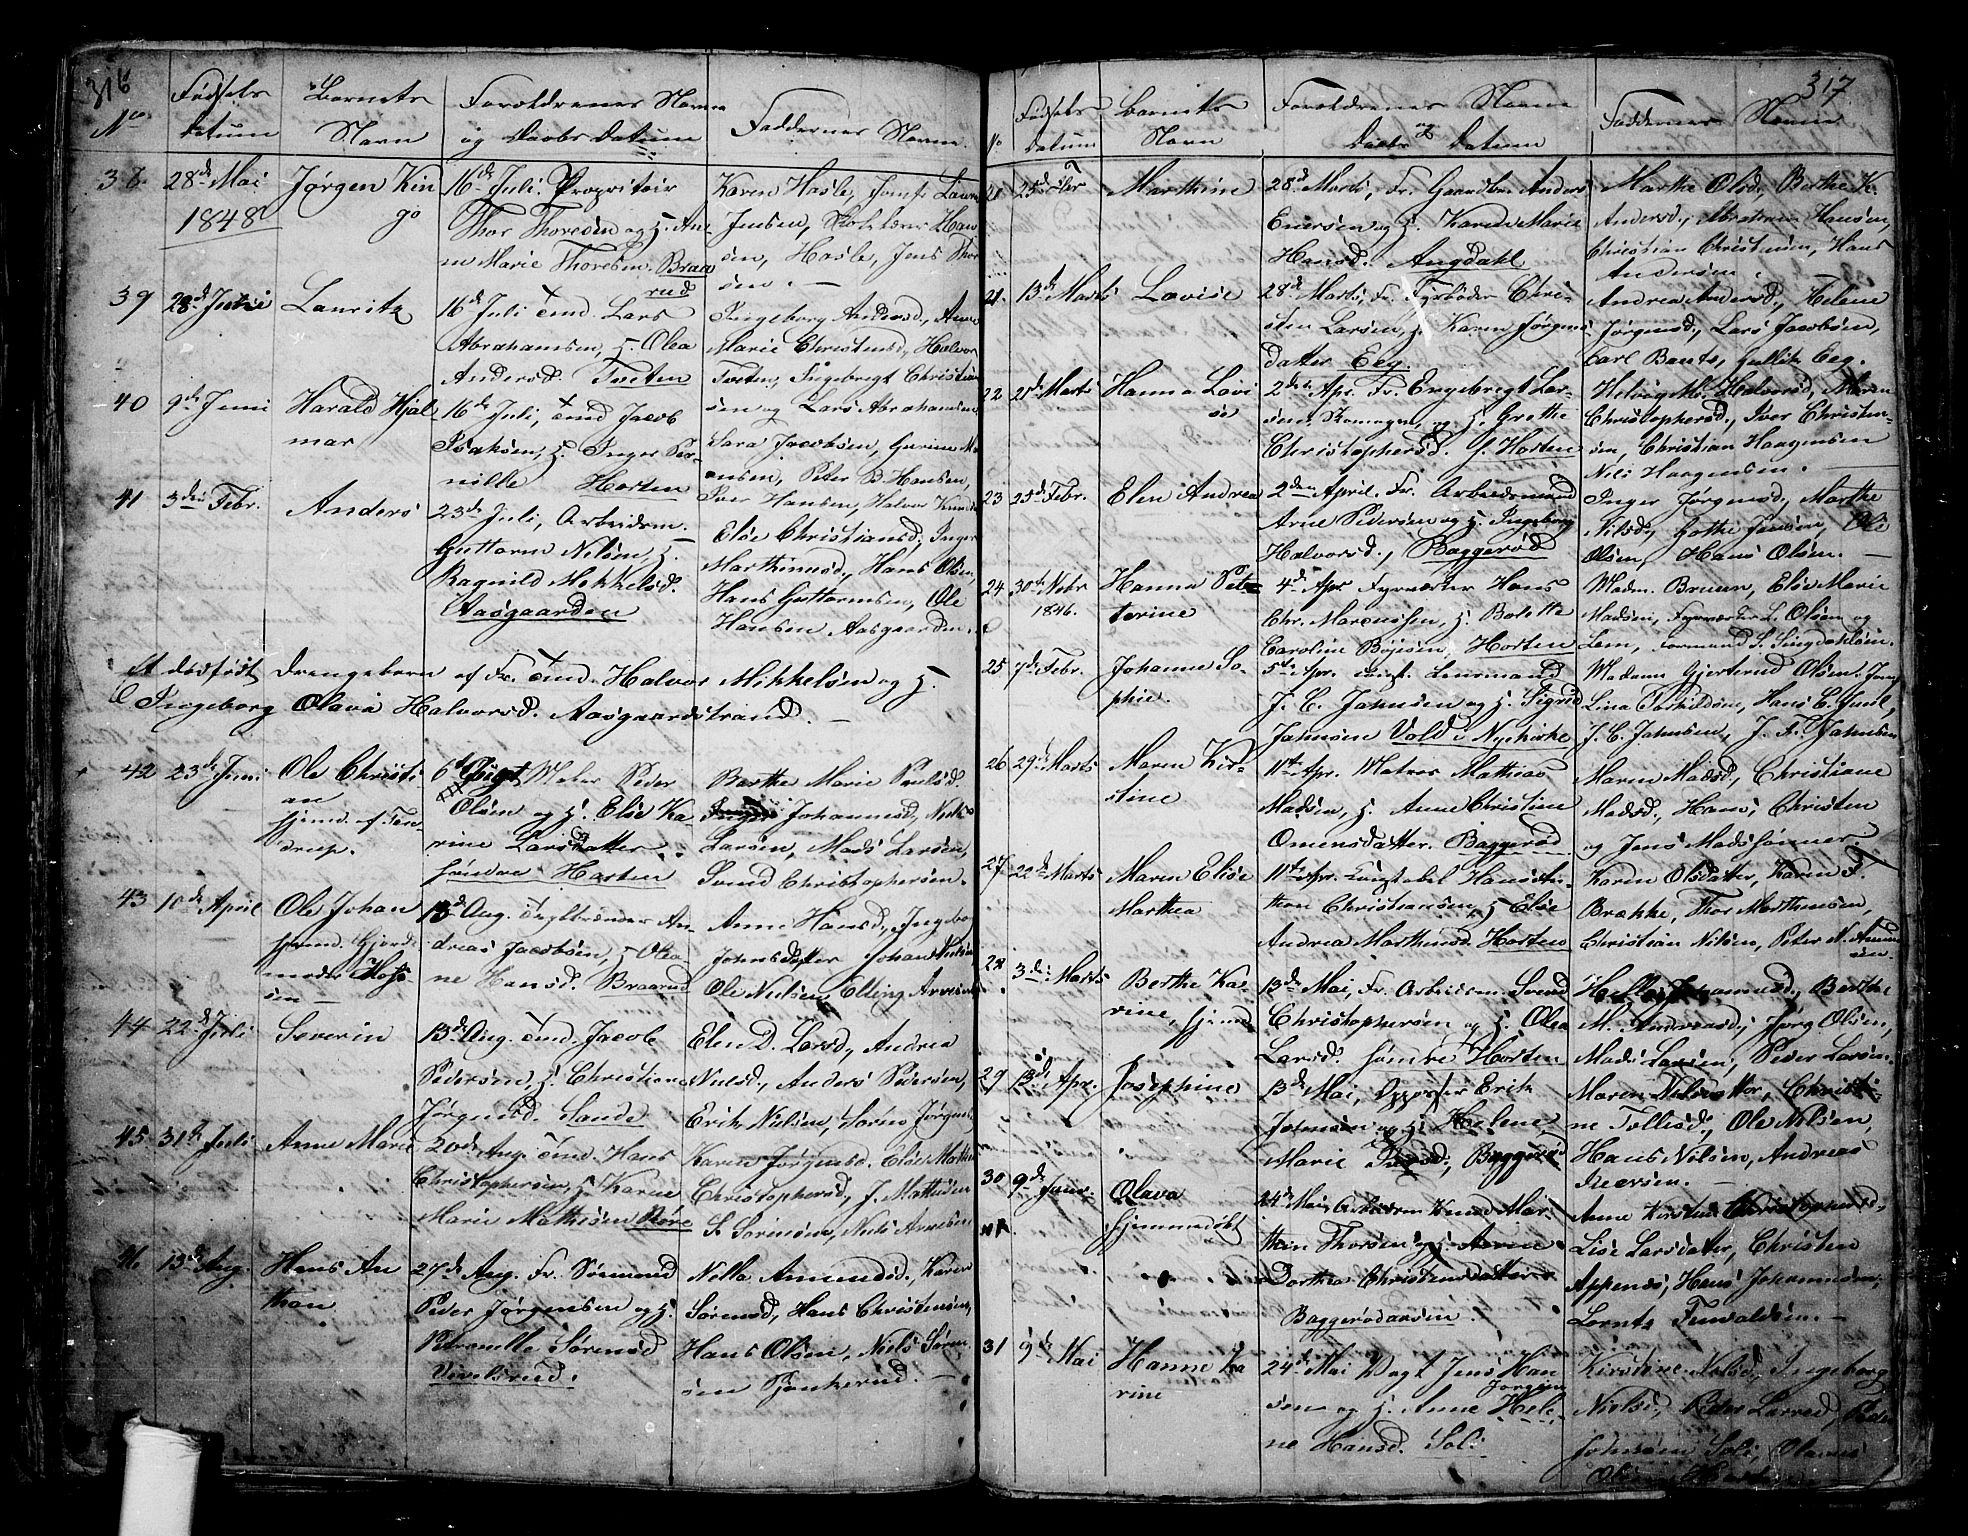 316
No
Fødsels
datum
Barnets
Navn
Foroldrenes Navne
og Daabs Datum
Faddernes Navne.
38. 28de Mai
1848
Jørgen Kin
go
16de Juli. Propritair
Thor Thoresen og H. An-
n Marie Thoresen. Braa
rud
Karen Hasle, Jomf.
Jensen, Han
sen, Hasle, Jens Thor
sen. —
39
Lauritz
16de Juli Tmd. Lars
Abrahamsen, H. Olea
Andersd. Tveten
Ingeborg Andersd., Anne
Marie Christensd., Halvor
Tveten, Ingebregt Christian
sen og Lars Abrahamsen
40 9de Juni
Harald Hjal
mar
16de Juli, Tmd Jacob
Isaksen, H. Inger Per-
nille Horten
Sara Jacobsen,
Peter B. Hansen,
Iver Hansen, Halvor
41 3die Febr.
Anders
23de Juli, Arbeidsm.
Guttorm Nilsen, H.
Ragnild Mekkelsd.
Aasgaarden
Else Christiansd, Inger
Marthinusd, Hans Olsen,
Hans Guttormsen, Ole
Hansen Aasgaarden.
Et dødfødt drengebarn af Fr. Tmd. Halvor Mikkelsen og H.
Ingeborg Olava Halvorsd. Aasgaardstrand. —
42 23de Juni
Ole Christi
an
hjemd. af
6te Maler Peder
Olsen og H. Else Ka-
rine Larsdatter
søndre Horten
Berthe Marie Paulsd.
Johannesd, Niels
Larsen, Mads Larsen,
Svend Christophersen.
43 10de April
Ole Johan
hjemd.
13de Aug. An-
dreas Jacobsen, H. Olea-
ne Hansd. Braarud
Anne Hansd., Ingebor
Johansdatter Johan Nielsen
Ole Nielsen, Elling
44 22de Juli
Severin
13de Aug. Tmd. Jacob
Pedersen, H. Christiane
Jørgensd. Sande
Elen D. Larsd, Andrea
Nielsd., Anders Pedersen,
Erik Nielsen, Søren Jørgens
45. 31te Juli
Anne Marie
20de Aug. Tmd. Hans
Christophersen, H. Karen
Marie Mathisen Røre
Karen Jørgensd. Else
Christophersd, J. Mathisen
S. Sørensen, Niels
46 13de Aug.
Hans An
thon
27de Aug. Fr. Sømand
Peder Jørgensen og H.
Pernille Sørensd
Vivelsrud.
Nella Amundsd., Karen
Sørensd, Hans Christensen,
Hans Olsen, Niels Søren
sen —
317
No
Fødsels
datum
Barnets
Navn
Foroldrenes Navne
og
Daabs Datum
Faddernes Navne
Marthine
28de Marts, Fr. Gaardbr. Anders
Enersen og H. Karen Marie
Hansd. Angdahl
Marthe Olsd, Berthe K.
Andersd., Abraham Hansen,
Christian Christensen, Hans
Andersen.
21. 13de Marts
Lovise
28de Marts, Fr. Fyrbøder Chri-
sten Larsen, H. Karen Jørgens
datter Eeg
Andrea Andersd., Helene
Jørgensd., Lars Jacobsen,
Carl Bants, Gullik Eeg.
22 21de Marts
Hanna Lovi
se
2den Apr. Fr. Engebregt Lar-
sen, og H. Grethe
Christophersd. G. Horten
Halvorsd, Maren
Christophersd, Iver Christen-
sen, Christian Haagensen
Nils Haagensen.
23 25de Febr.
Elen Andrea
2den April. Fr. Arbeidsmand
Arne Pedersen og H. Ingeborg
Halvorsd., Baggerød
Inger Jørgensd, Marthe
Nilsd, Gothe Jensen, Ole
Olsen, Hans Olsen. —
24 30te Nobr
1846.
Hanna Pet-
terine
4de Apr. Fyrværker Hans
Chr. Marcussen, H. Bolette
Caroline Bøjesen, Horten
Madm. Bruun, Else Marie
Madsen, Fyrværker L. Olsen og
Lem, Formand S. Singdahlsen.
25 7de Febr.
Johanne So-
phie.
5te Apr. Lensmand
J. C. Jahnsen og H. Sigrid
Jahnsen Vold i Nykirke
Madam Gjertrud Olsen, Jomf
Lina Torkildsen, Hans C. Juul,
J. C. Jahnsen, J. F. Jahnsen
26 29de Marts
Maren Kir-
stine
11te Apr. Matros Mathias
Madsen, H. Anne Christine
Omensdatter. Baggerød
Maren Madsd, Christiane
Madsd., Hans Christen
og Jens Madssønner.
27 22de Marts
Maren Elise
Marthea
11te Apr. Hans An-
thon Christiansen, H. Else
Andrea Marthinsd. Horten
Karen Olsdatter, Karen T.
Brække, Thor Marthinsen,
Christian Nilsen, Peter N. Amund
sen.
28 3die Marts
Berthe Ka-
rine, hjemd
13de Mai, Fr. Arbeidsm. Svend
Christophersen og H. Olea
Larsd. søndre Horten
Helle Johannesd., Berthe
M. Andreasd., Jørg Olsen,
Mads Larsen, Peder Larsen.
29 13de Apr.
Josephine
13de Mai, Opparter Erik
Johnsen og H. Helene
Marie Baggerød
Maren Nilsdatter, Christi-
ne Tollisd., Ole Nilsen,
Hans Nilsen, Andreas
Iversen. —
30 9de Janr.
Olava
hjemmedøbt
24de Mai, Arbeidsm. Knud Mar-
thin Thorsen og H. Anne
Dorthea Christensdatter
Baggerødaasen.
Anne Kirstine Christophersd.,
Lise Larsdatter, Christen
Appenæs, Hans Johannesen,
Lornts Tuvaldsen. —
31 9de Mai
Hanne Ka
rine
24de Mai Vagt Jens Han
Jørgen
sen og H. Anne Hele-
ne Hansd. Soli
Kirstine Nilsd, Ingeborg
Nielsd, Peder
Johnsen Soli, Olaves